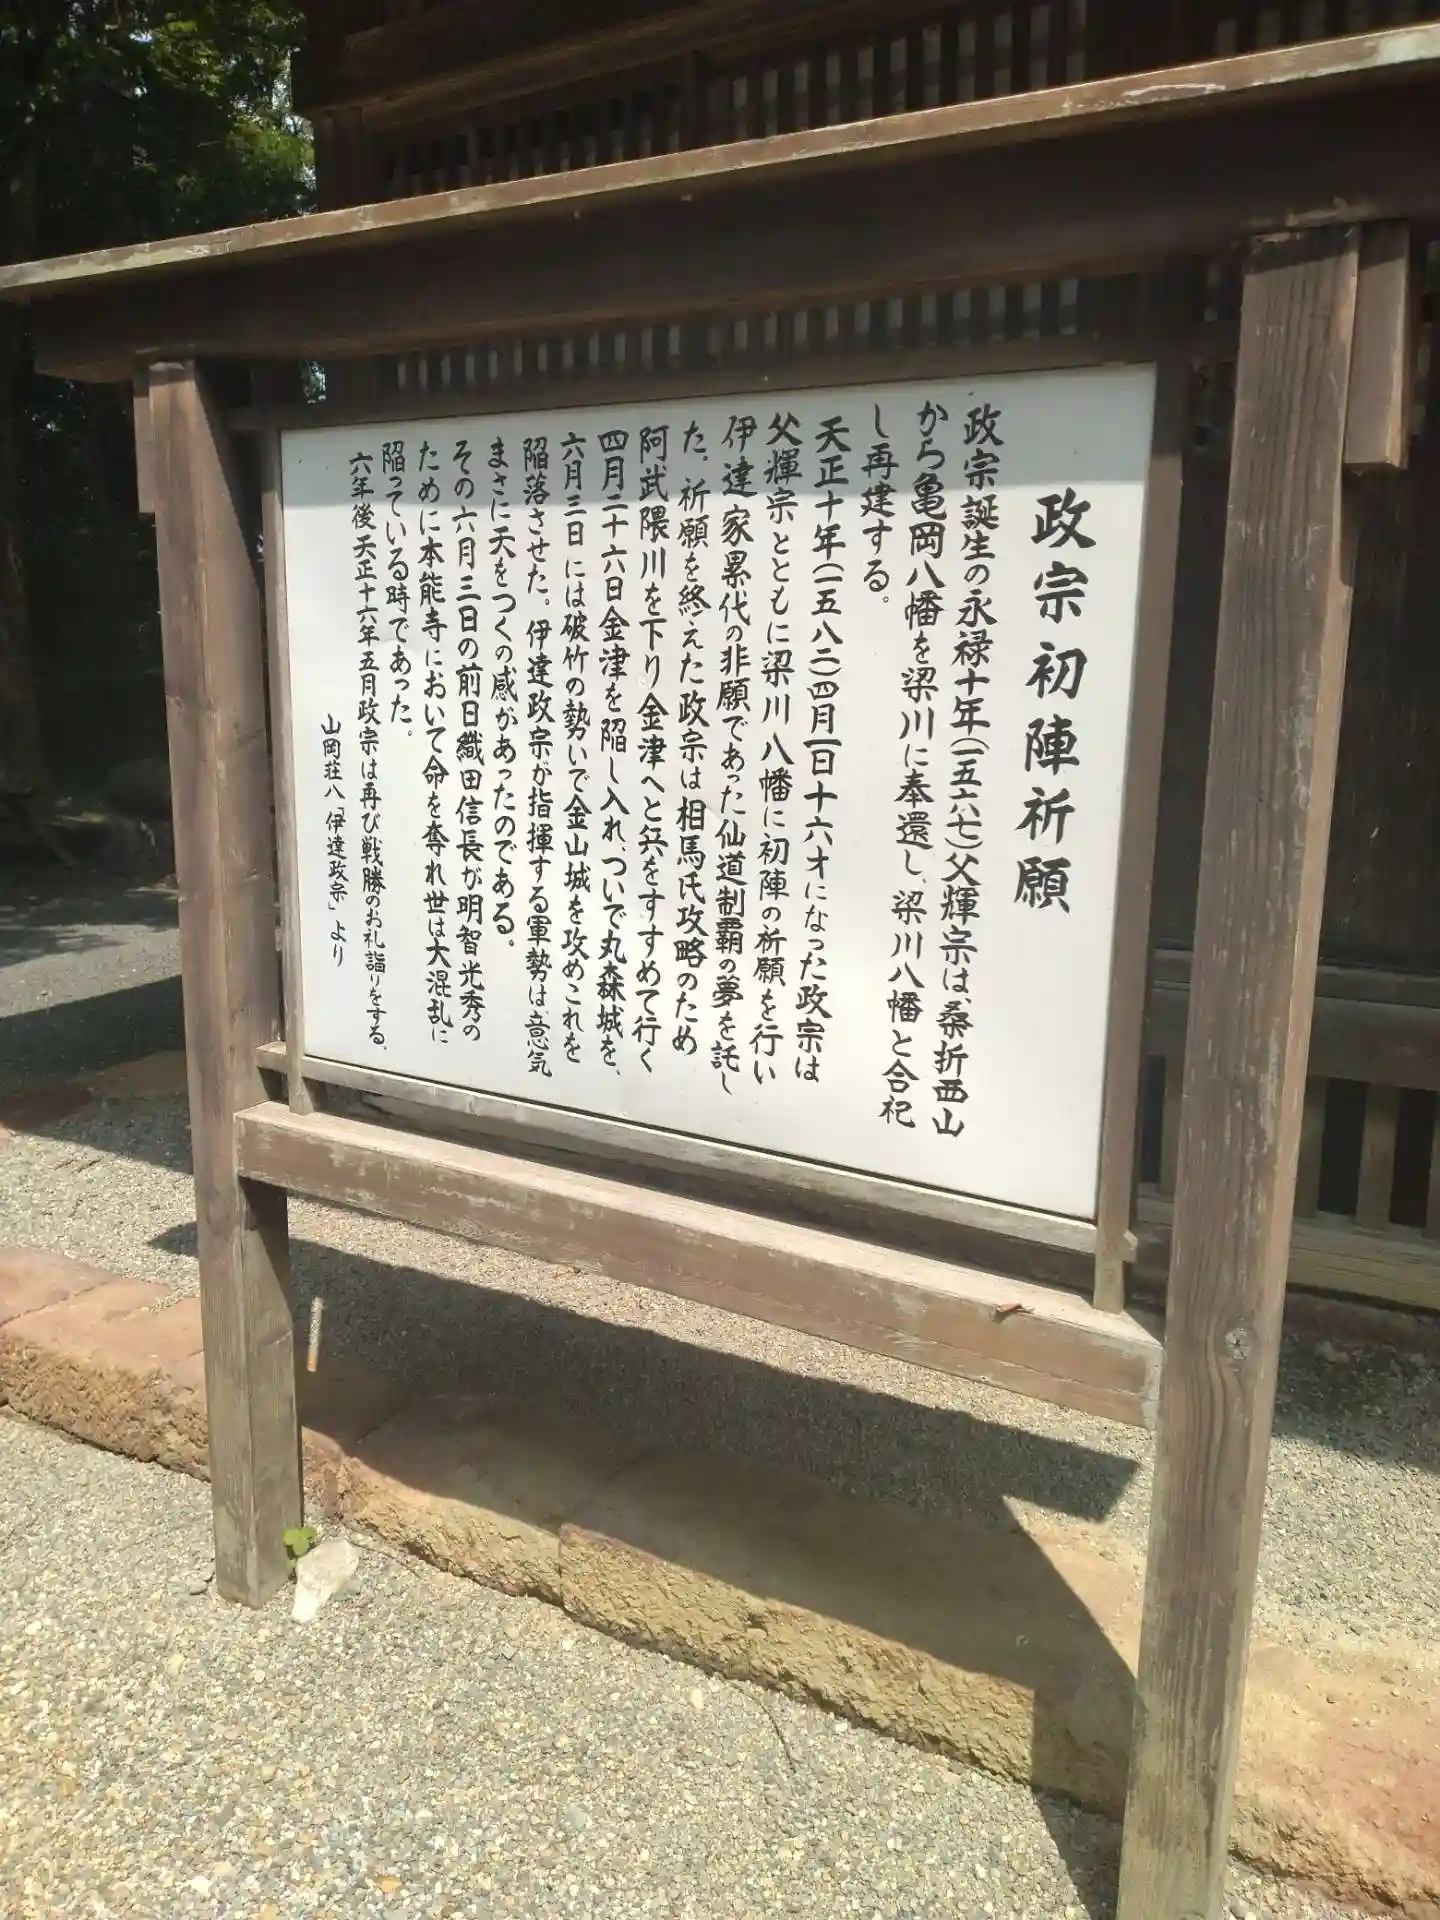 政宗初陣祈願
政宗誕生の永禄十年(一五六七)父輝宗は、桑折西山
から亀岡八幡を梁川に奉還し、梁川八幡と合祀
し再建する。
天正十年(一五八二)四月一日十六才になった政宗は
父輝宗とともに梁川八幡に初陣の祈願を行い
伊達家累代の非願であった仙道制覇の夢を託し
た。祈願を終えた政宗は相馬氏攻略のため
阿武隈川を下り金津へと兵をすすめて行く
四月二十六日金津を陥し入れ、ついで丸森城を、
六月三日には破竹の勢いで金山城を攻めこれを
陥落させた。伊達政宗が指揮する軍勢は、意気
まさに天をつくの感があったのである。
その六月三日の前日織田信長が明智光秀の
ために本能寺において命を奪れ世は大混乱に
陥っている時であった。
六年後天正十六年五月政宗は再び戦勝のお礼詣りをする、
山岡荘八「伊達政宗」より